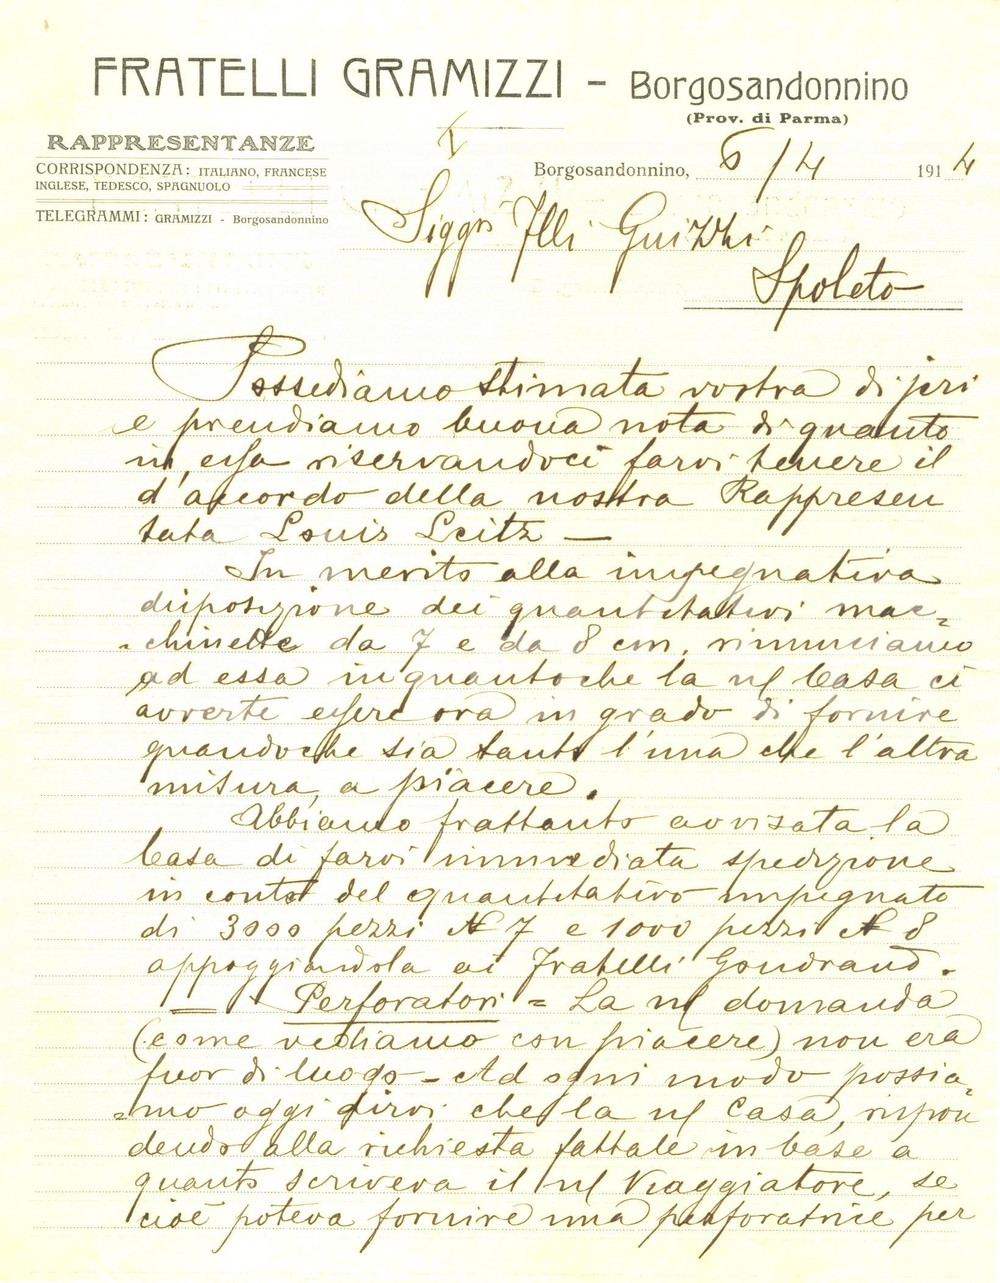 FRATELLI GRAMIZZI - Borgosandonnino
(Prov. di Parma)
RAPPRESENTANZE
CORRISPONDENZA: ITALIANO, FRANCESE
INGLESE, TEDESCO, SPAGNUOLO
TELEGRAMMI: GRAMIZZI - Borgosandonnino
I
Borgosandonnino, 6/4 1914
Siggri Flli Guizzhi
Spoleto
Possediamo stimata vostra di jeri
e prendiamo buona nota di quanto
in essa riservandoci farvi tenere il
d'accordo della nostra Rappresen
tata Louis Leitz —
In merito alla impegnativa
disposizione dei quantitativi mac=
=chinette da 7 e da 8 cm. rinunciamo
ad essa inquantoche la n/ Casa ci
avverte essere ora in grado di fornire
quandoche sia tanto l'una che l'altra
misura, a piacere.
Abbiamo frattanto avvisata la
Casa di farvi immediata spedizione
in conto del quantitativo impegnato
di 3000 pezzi N 7 e 1000 pezzi N 8
appoggiandola ai Fratelli Gondrand.
= Perforatori = La n/ domanda
(come vediamo con piacere) non era
fuor di luogo - Ad ogni modo possia=
=mo oggi dirvi che la n/ Casa, rispon
dendo alla richiesta fattale in base a
quanto scriveva il n/ Viaggiatore, se
cioè poteva fornire una perforatrice per